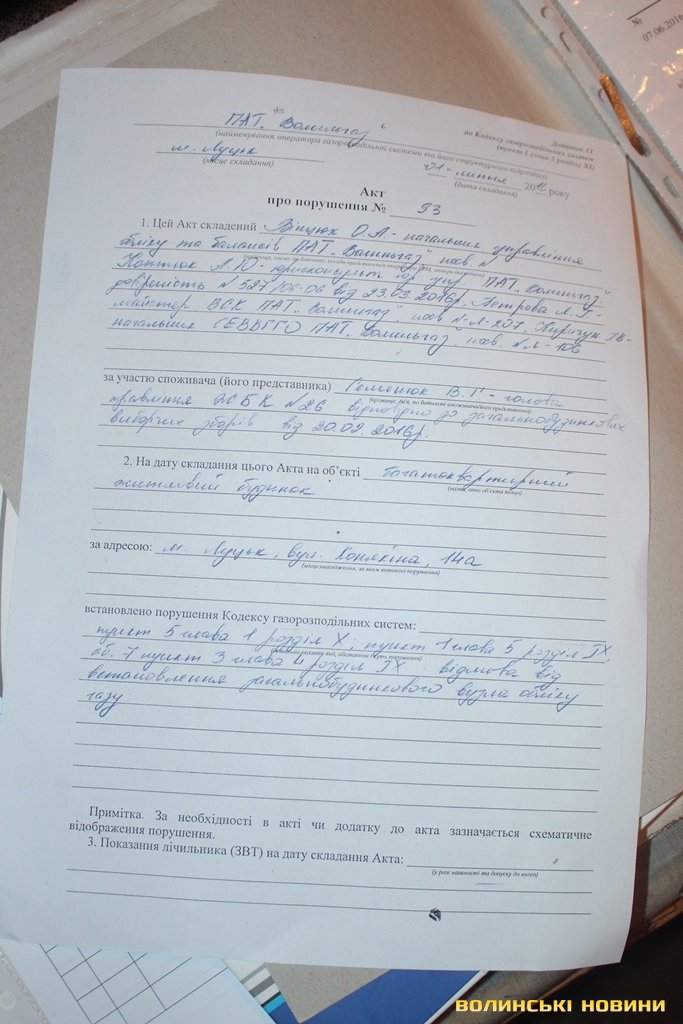 №
07.06.2016
Додаток 11
до Кодексу газорозподільних систем
(пункт 1 глави 5 розділу XI)
ПАТ „Волиньгаз"
(найменування оператора газорозподільної системи та його структурного підрозділу)
м. Луцьк
01 липня 2016 року
(місце складання)
(дата складання)
Акт
про порушення № 93
1. Цей Акт складений Вінцюк О.А - начальник управління
обліку та балансів ПАТ „Волиньгаз" посв. №
А.Ю - юрисконсульт юр. упр. ПАТ „Волиньгаз"
довіреність № 527/06-06 від 23.03.2016р, Петрова Л.
майстер ВСК ПАТ „Волиньгаз" посв № Л-207, Киричук
начальник ПАТ „Волиньгаз" посв. №Л-106
за участю споживача (його представника) Семенюк В.Г - голова
правління ЖБК №26 відповідно до загальнобудинкових
виборчих зборів від 20.02.2016р.
2. На дату складання цього Акта на об'єкті багатоквартирний
(назва, опис об'єкта тощо)
житловий будинок
за адресою: м. Луцьк, вул. Конякіна, 14а
(місцезнаходження, за яким виявлено порушення)
встановлено порушення Кодексу газорозподільних систем:
пункт 5 глава 1 розділ X; пункт 1 глава 5 розділ IX,
аб. 7 пункт 3 глава 4 розділ IX відмова від
встановлення загальнобудинкового вузла обліку
газу
Примітка. За необхідності в акті чи додатку до акта зазначається схематичне
відображення порушення.
3. Показання лічильника (ЗВТ) на дату складання Акта:
(у разі наявності та допуску до нього)
ВОЛИНСЬКІ НОВИНИ